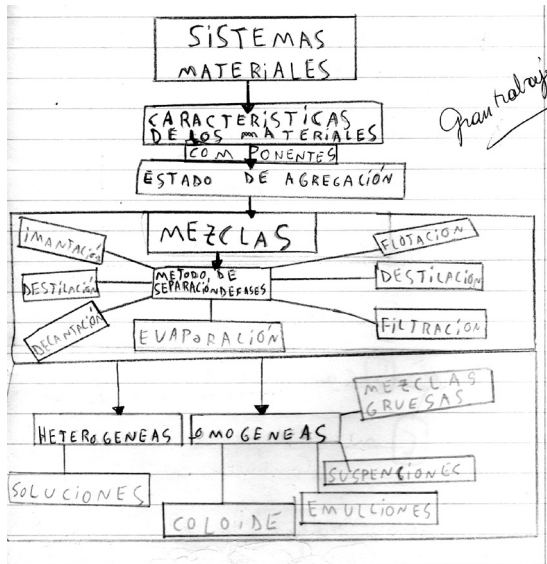 SISTEMAS
MATERIALES
Gran trabajo
CARACTERÍSTICAS
DE LOS MATERIALES
COMPONENTES
ESTADO DE AGREGACIÓN
MEZCLAS
IMANTACIÓN
FLOTACIÓN
METODO, DE
SEPARACIÓN DE FASES
DESTILACIÓN
DESTILACIÓN
DECANTACIÓN
EVAPORACIÓN
FILTRACION
MEZCLAS
GRUESAS
HETEROGENEAS
OMOGENEAS
SUSPENCIONES
SOLUCIONES
COLOIDE
EMULCIONES